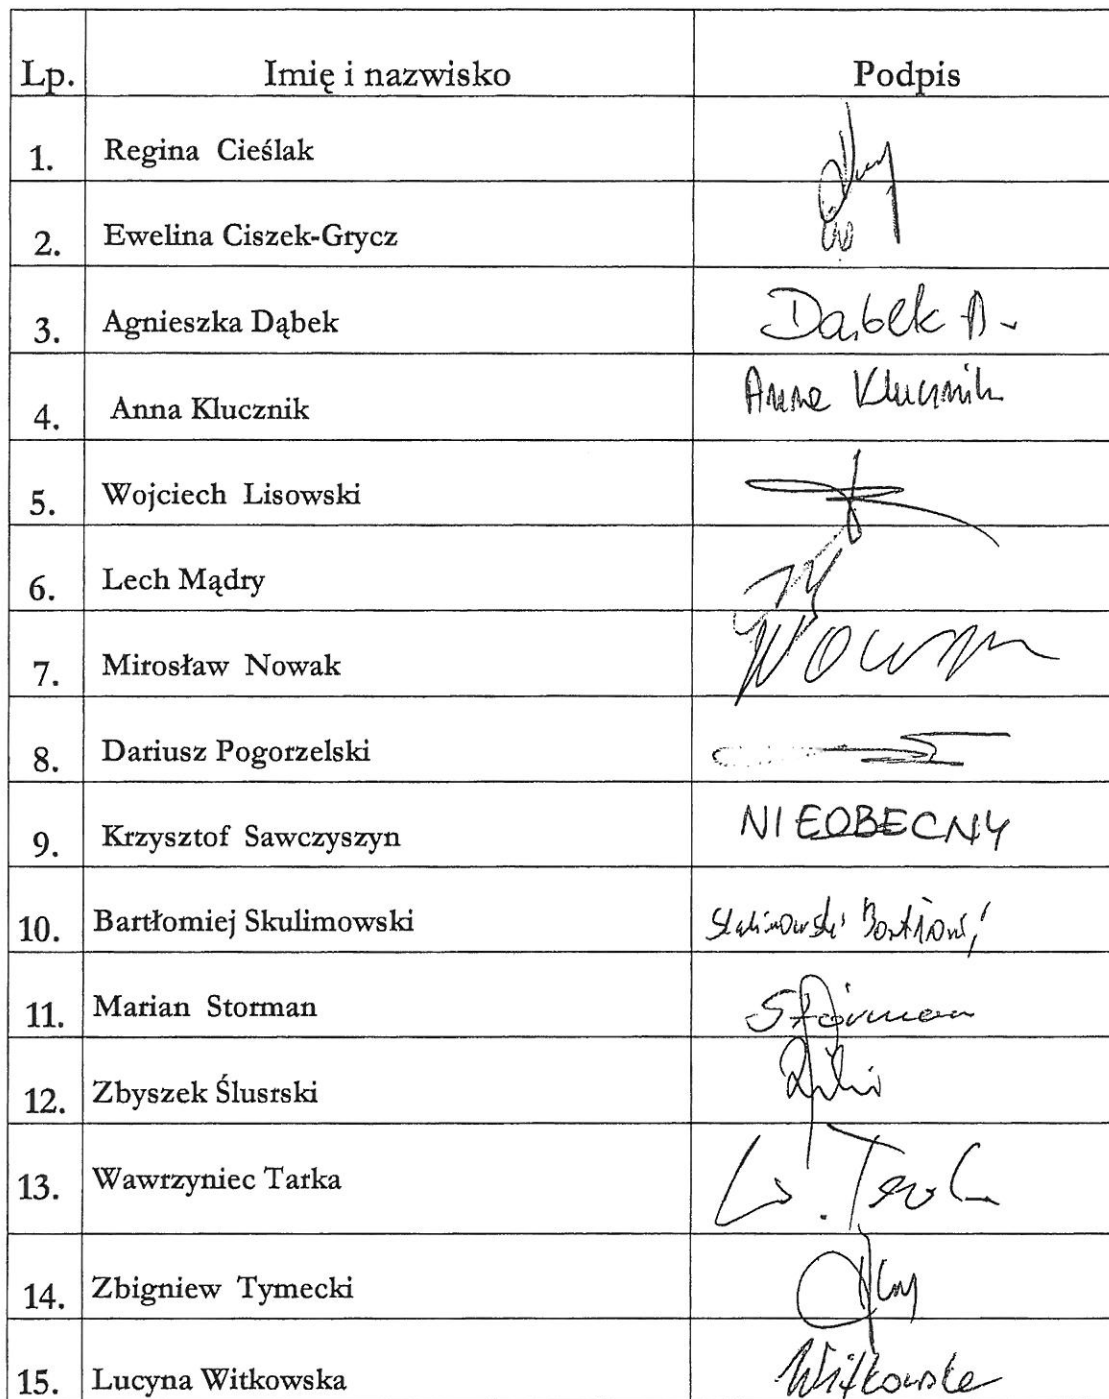 Lp. Imię i nazwisko Podpis
1. Regina Cieślak
2. Ewelina Ciszek-Grycz
3. Agnieszka Dąbek Dąbek A.
4. Anna Klucznik Anna Klucznik
5. Wojciech Lisowski
6. Lech Mądry
7. Mirosław Nowak Nowak
8. Dariusz Pogorzelski
9. Krzysztof Sawczyszyn NIEOBECNY
10. Bartłomiej Skulimowski Skulimowski Bartłomi
11. Marian Storman Storman
12. Zbyszek Ślusrski
13. Wawrzyniec Tarka W. Tarka
14. Zbigniew Tymecki
15. Lucyna Witkowska Witkowska